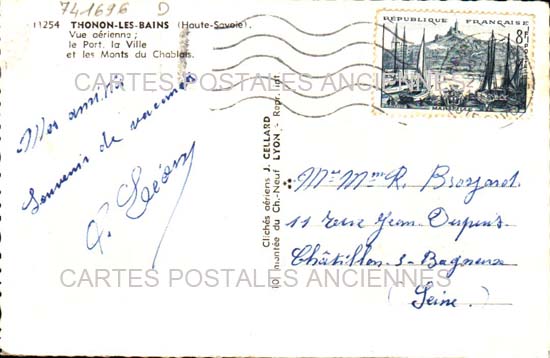 741696 D
11254 THONON-LES-BAINS (Haute-Savoie)
Vue aérienne ;
le Port, la Ville
et les Monts du Chablais.
Souvenir de vacances
Clichés aériens J. CELLARD
101 montée du Ch.-Neuf LYON - Repr. int.
RÉPUBLIQUE FRANÇAISE
8F
POSTES
MARSEILLE
Mr Mme R.
11 rue Jean
Châtillon s- Bagneux
(Seine)
CARTES POSTALES ANCIENNES
CARTES POSTALES ANCIENNES